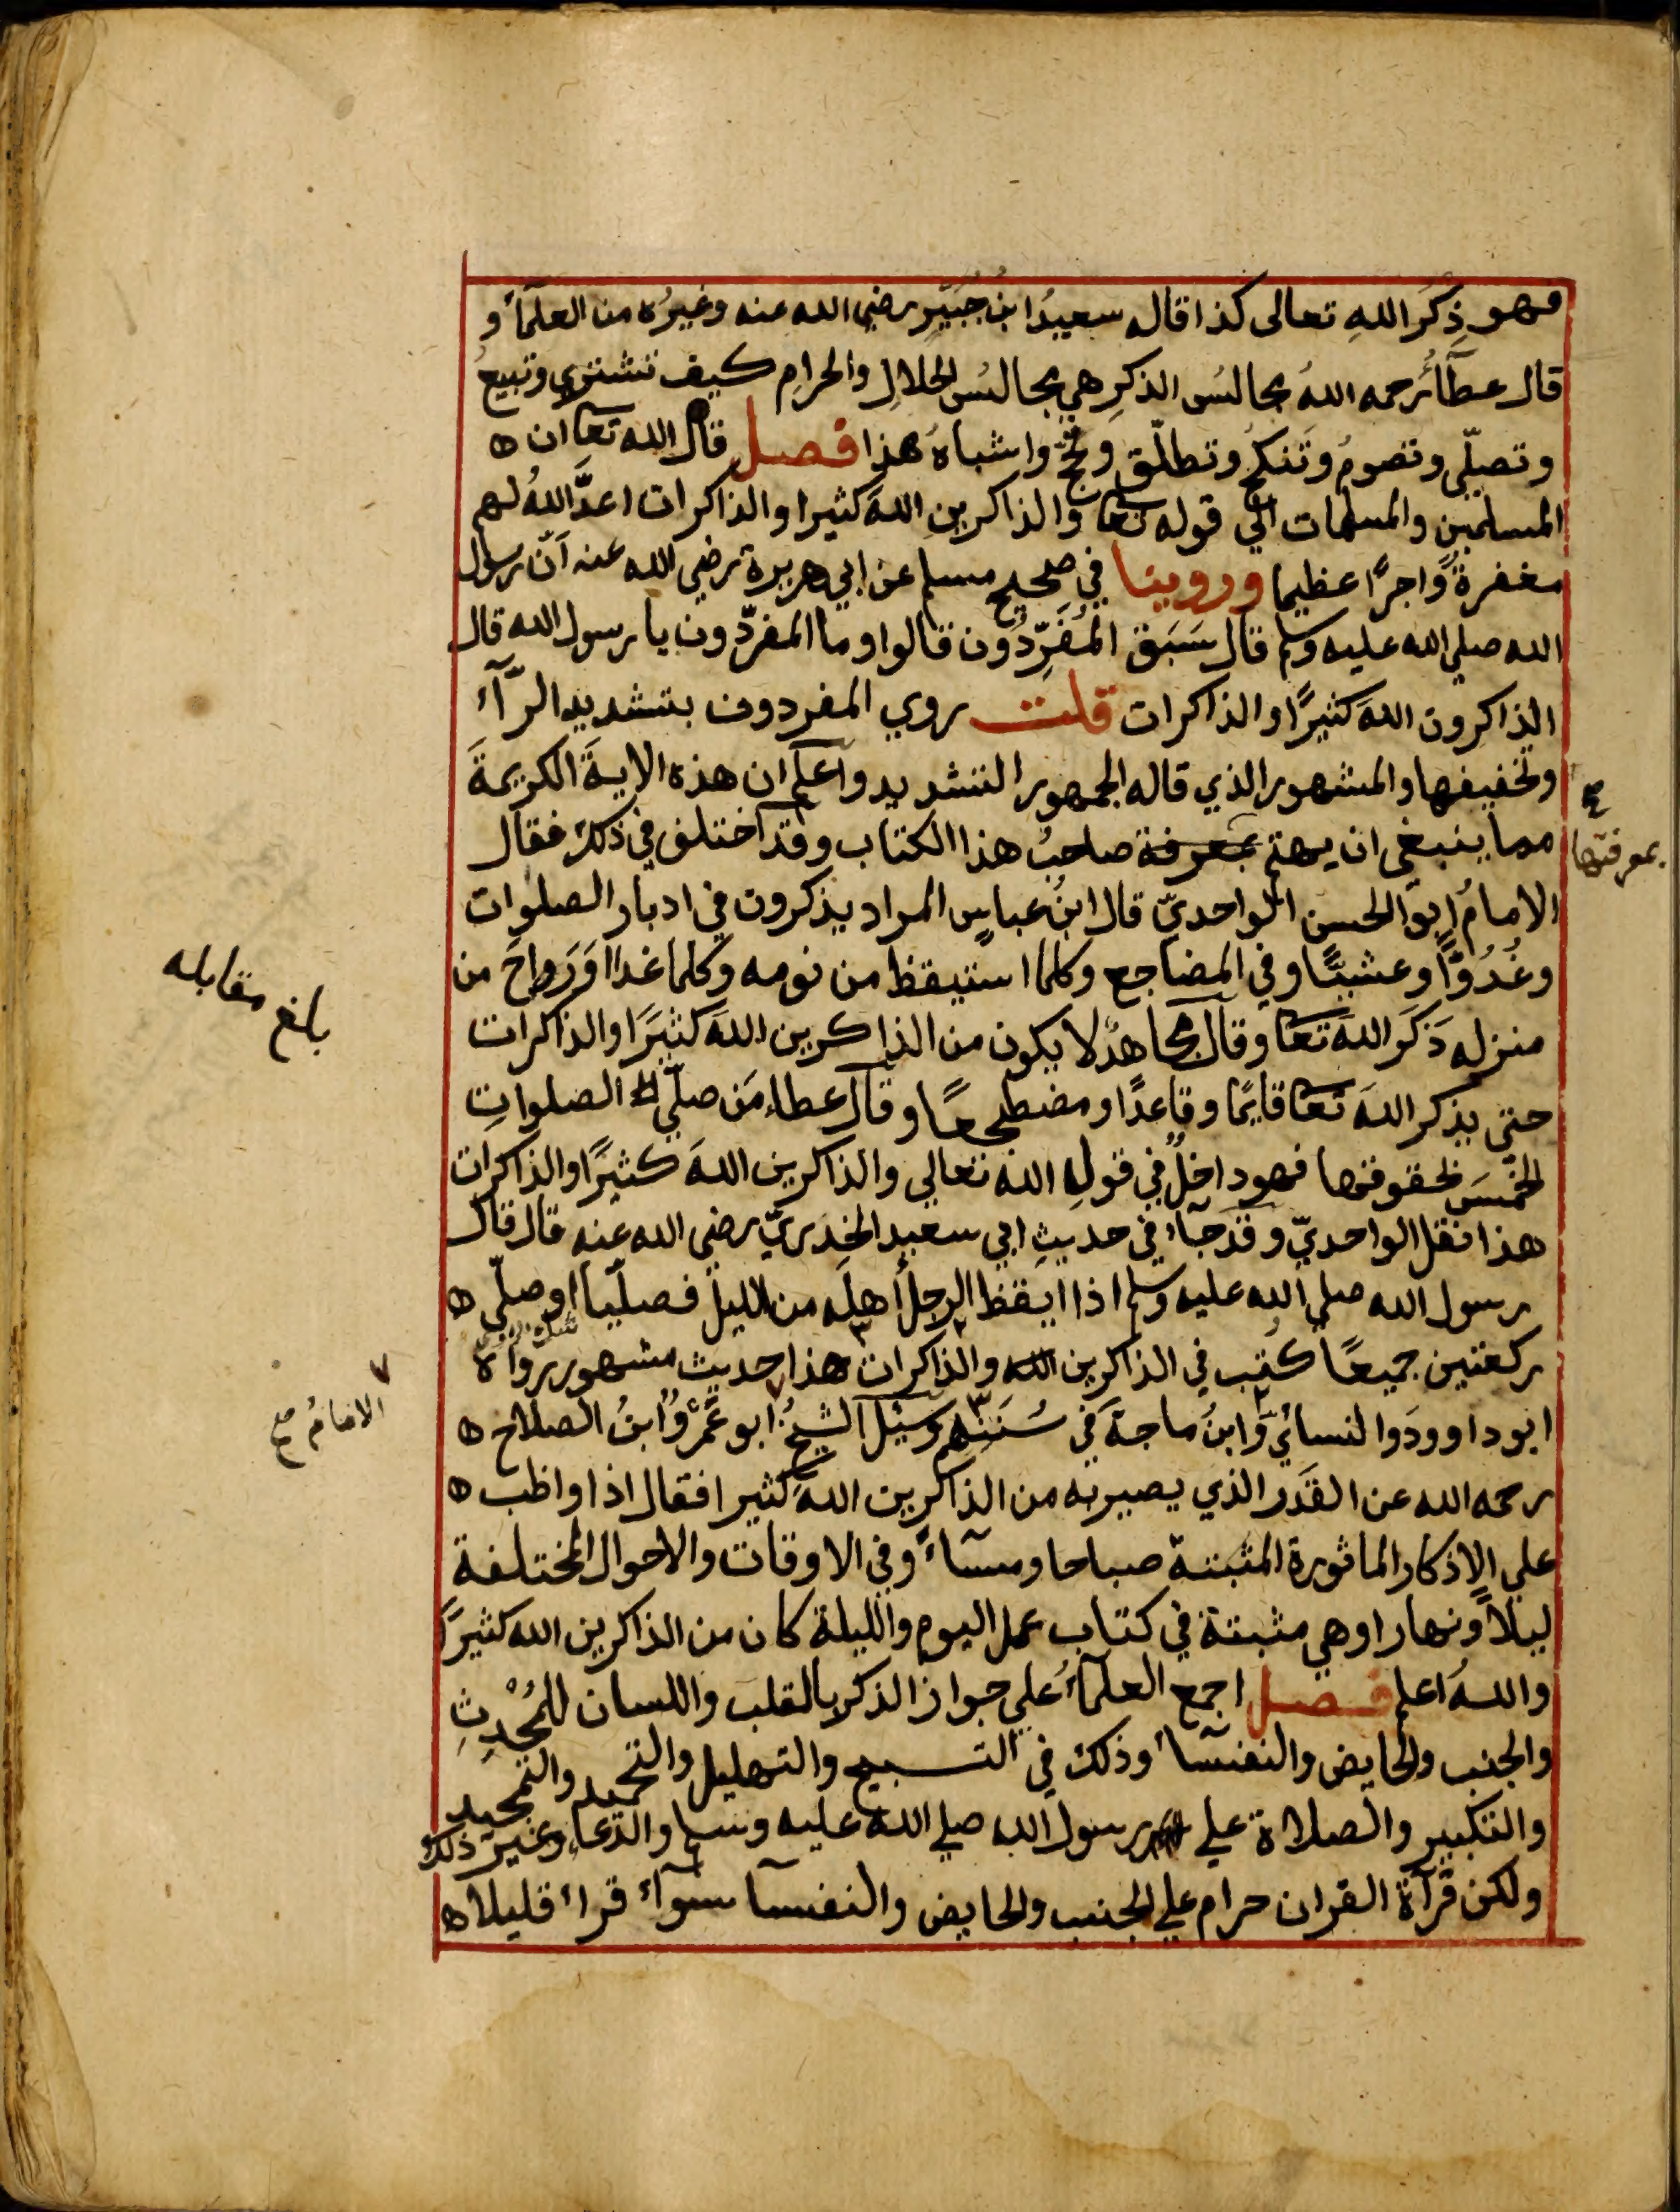 فهو ذِكَرَ اللهِ تعالى كذا قاله سعيدُ ابنُ جُبَيْرٍ رضي الله عنه وغيرُه من العلمآءُ و
قال عطآءُ رحمه اللهُ مجالسُ الذكرِ هي مجالسُ الحلالِ والحرامِ كيف تشتري وتبيعُ
وتصلّي وتصومُ وتَنكحُ وتطلّق وتحجُّ واشباهُ هذا فصل قال الله تعا ان ه
المسلمين والمسلمات الي قوله تعا والذاكرين اللهَ كثيرا والذاكرات اعدَّ اللهُ لهم
مغفرةً واجرًا عظيما وروينا في صحيح مسلم عن ابي هريرة رضي الله عنه انّ رسول
الله صلي الله عليه وسلم قال سَبَقَ المُفَرِّدُون قالوا وما المفرّدون يا رسول الله قال
الذاكرون اللهَ كثيرًا والذاكرات قلت روي المفردون بتشديد الرّآءِ
وتخفيفها والمشهور الذي قاله الجمهور التشديد واعلم ان هذه الايةَ الكريمةَ
مما ينبغي ان يهتم بمعرفة صاحبُ هذا الكتاب وقد اختلف في ذلك فقال
بمعرفتها
الامامُ ابو الحسن الواحديّ قال ابنُ عباسٍ المراد يذكرون في ادبار الصلوات
وغُدُوًّا وعشيًّا وفي المضاجع وكلما استيقظ من نومه وكلما غدا اوَ رَواحَ من
منزله ذَكَرَ اللهَ تعا وقال مجاهدُ لا يكون من الذاكرين اللهَ كثيرًا والذاكرات
بلغ مقابله
حتى يذكر اللهَ تعا قايمًا وقاعدًا ومضطجعًا وقال عطاء مَن صلّي الصلواتِ
الخمسَ بحقوقها فهو داخلٌ في قولِ الله تعالي والذاكرين اللهَ كثيرًا والذاكرات
هذا نقل الواحديّ وقد جآءَ في حديثِ ابي سعيد الخدريّ رضي الله عنه قال قال
رسول الله صلي الله عليه وسلم اذا ايقظ الرجل أهلَه من الليل فصلّيا او صلّي ه
ركعتين جميعًا كُتِب في الذاكرين الله والذاكرات هذا حديث مشهور روآه
ابو داوودَ والنسائيّ وَابنُ ماجةَ في سُنَنِهم وسيل الشيخُ ابو عَمْرٍو ابنُ الصلاح ه
الامامُ صح
رحمه الله عن القَدَر الذي يصير به من الذاكرين اللهَ كثيرا فقال اذا واظب ه
علي الاذكار الماثورة المثبتة صباحا ومسآءً وفي الاوقات والاحوال المختلفة
ليلاً ونهارا وهي مثبتة في كتاب عمل اليوم والليلة كان من الذاكرين الله كثيرًا
واللهُ اعلم فصل اجمع العلمآءُ علي جواز الذكر بالقلب واللسان للمُحْدِثِ
والجنب والحايض والنفسآء وذلك في التسبيح والتهليل والتحميد والتمجيد
والتكبير والصلاة علي رسول الله صلي الله عليه وسلم والدّعاء وغير ذلك
ولكن قرآة القران حرام علي الجنب والحايض والنفسآ سوآء قراء قليلا ه